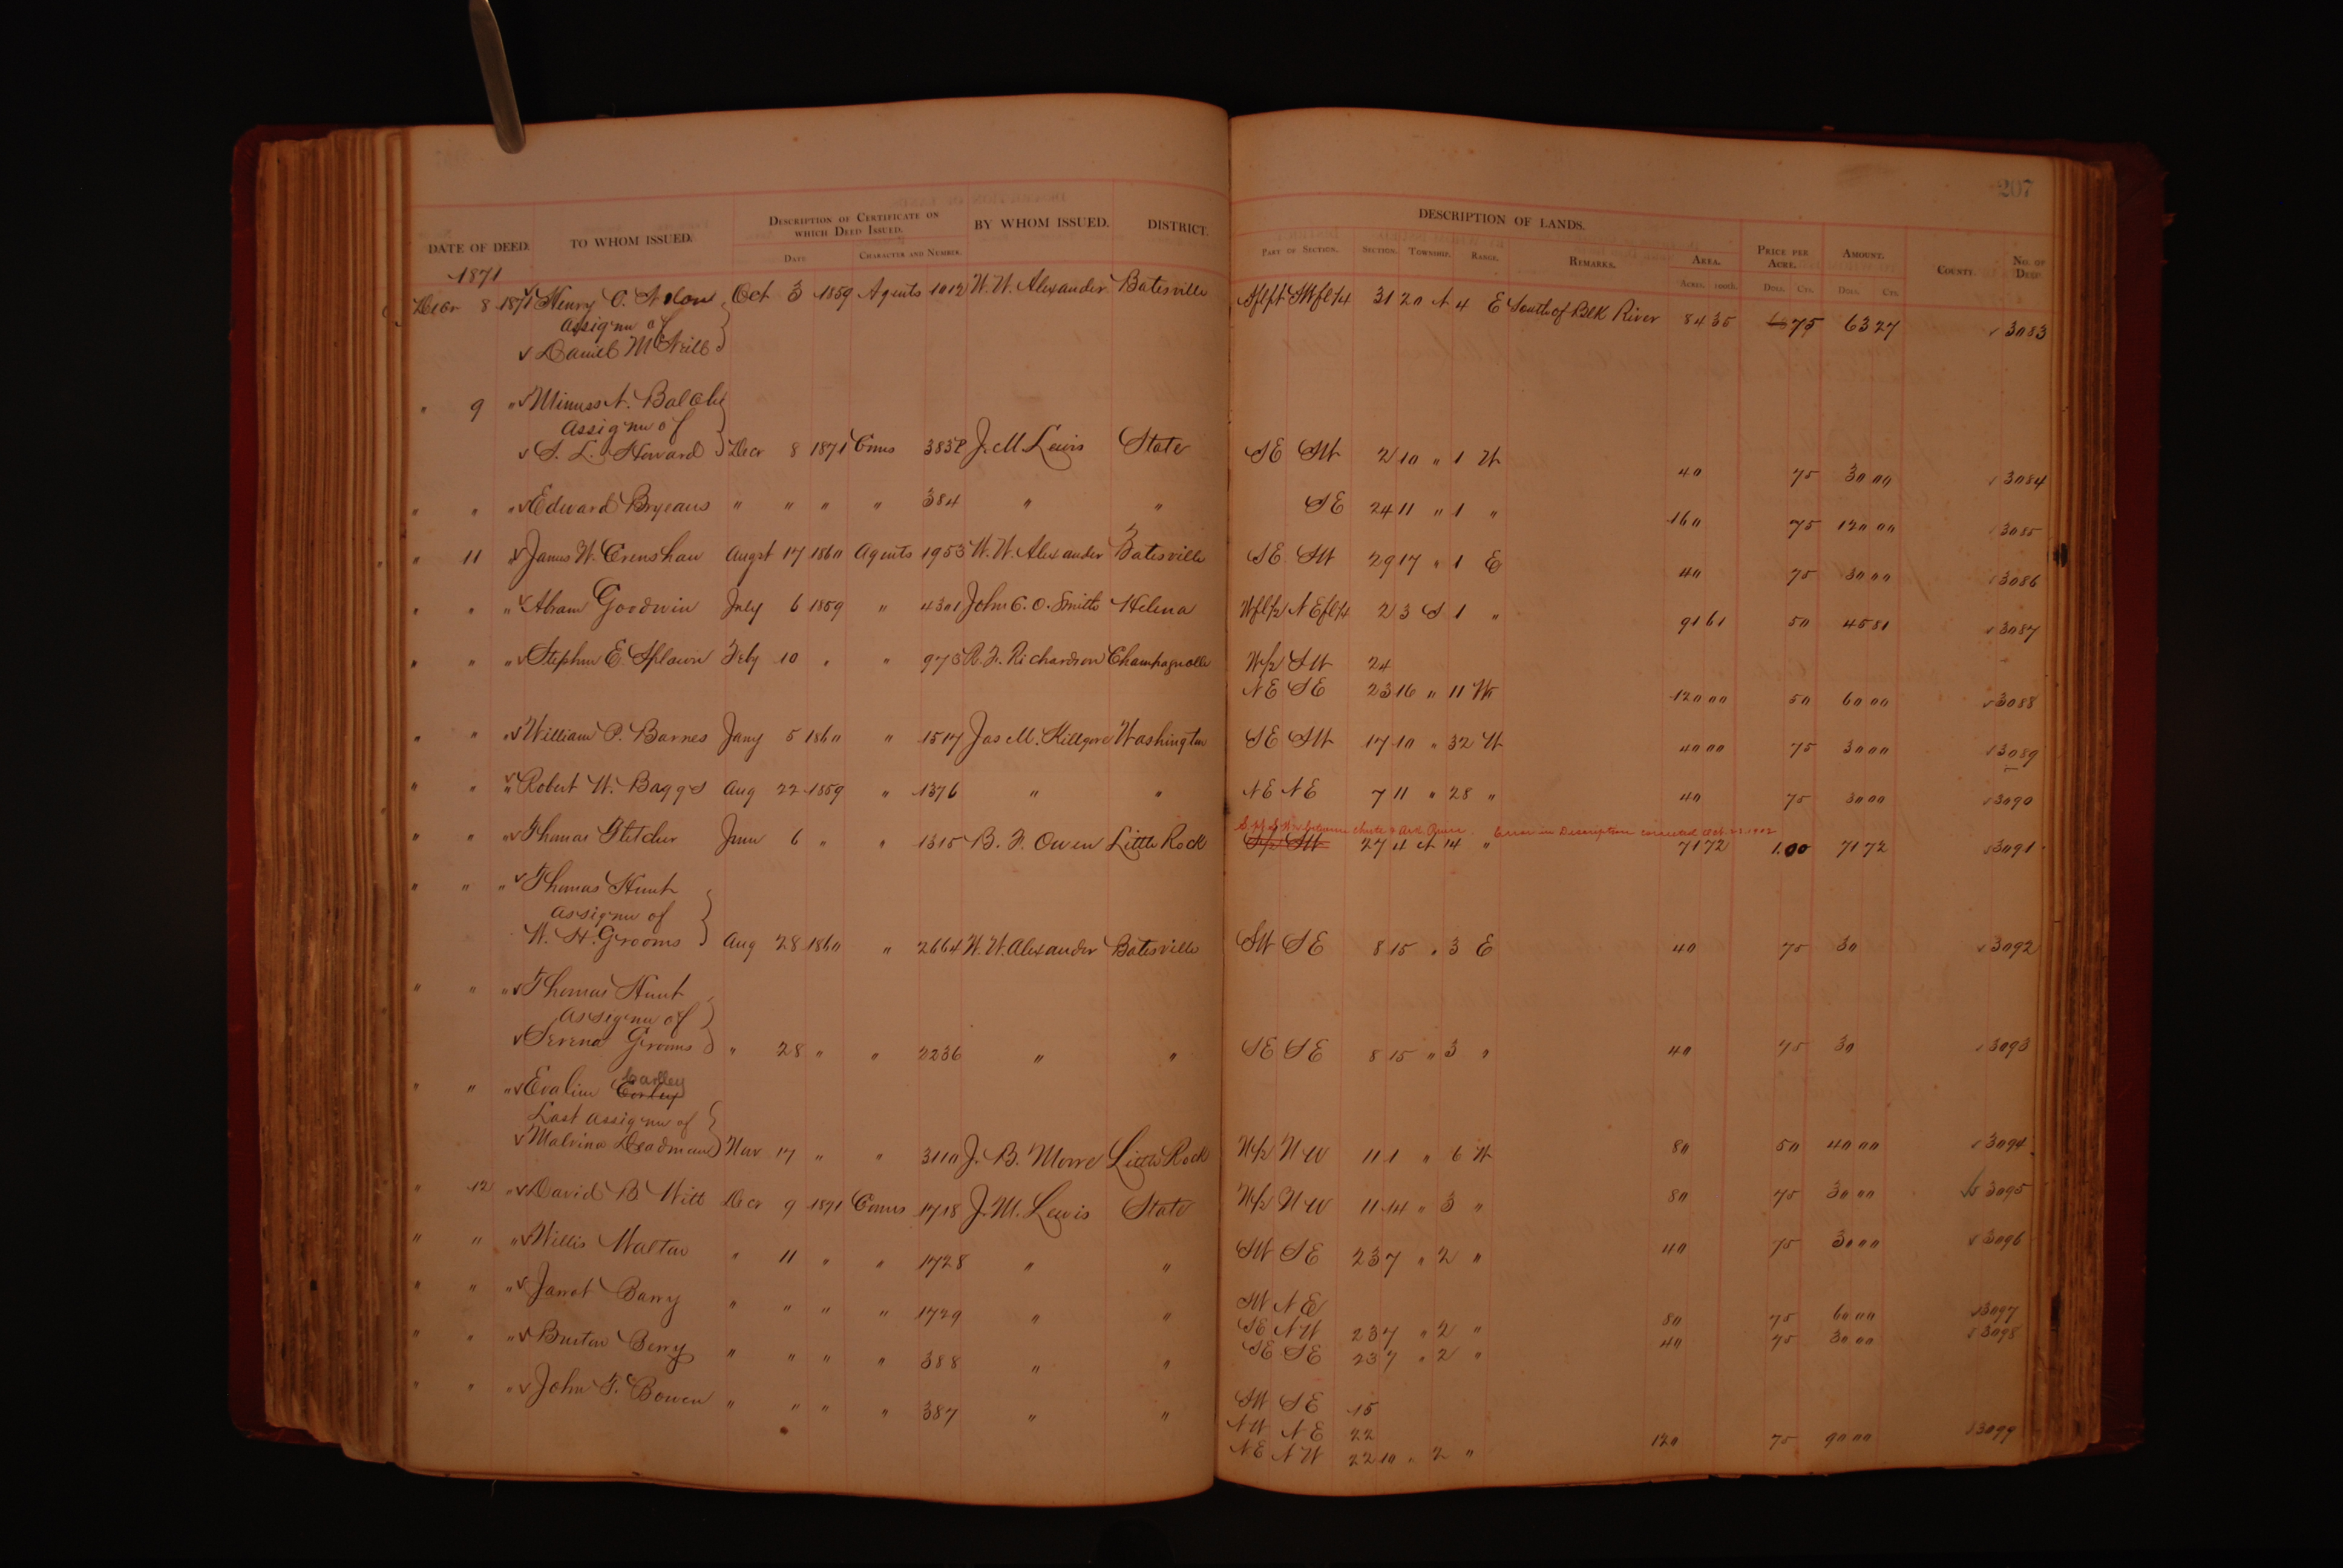 207
DESCRIPTION OF LANDS.
DATE OF DEED. TO WHOM ISSUED. DESCRIPTION OF CERTIFICATE ON WHICH DEED ISSUED. BY WHOM ISSUED. DISTRICT. PRICE PER ACRE. AMOUNT. COUNTY. NO. OF DEED.
DATE CHARACTER AND NUMBER. PART OF SECTION. SECTION. TOWNSHIP. RANGE. REMARKS. AREA.
ACRES. 100TH. DOLL. CTS. DOLL. CTS.
1871
Decr 8 1871 Henry C. Oct 3 1859 Agents 1012 W. W. Alexander Batesville SWfl1/4 31 20 N 4 E South of Blk River 84 35 75 63 27 3083
Assignee of
Daniel McNeill
" 9 " N. Balch
Assignee of
S. L. Howard Decr 8 1871 Coms 383 J. M. Lewis State SE SW 2 10 " 1 W 40 75 30 00 3084
" " " Edward Bryeans " " " " 384 " " SE 24 11 " 1 " 160 75 120 00 3085
" 11 " James W. Crenshaw Augst 17 1860 Agents 1953 W. W. Alexander Batesville SE SW 29 17 " 1 E 40 75 30 00 3086
" " " Abram Goodwin July 6 1859 " 4301 John C. O. Smith Helena Wfl1/2 NEfl1/4 2 3 S 1 " 91 61 50 45 81 3087
" " " Stephen E. Splawn Feby 10 " " 973 R. F. Richardson Champagnolle W1/2 SW 24
NE SE 23 16 " 11 W 120 00 50 60 00 3088
" " " William P. Barnes Jany 5 1860 " 1517 Jas M. Killgore Washington SE SW 17 10 " 32 W 40 00 75 30 00 3089
" " " Robert W. Baggs Aug 22 1859 " 1376 " " NE NE 7 11 " 28 " 40 75 30 00 3090
Error in Description corrected Oct 1902
" " " Thomas Fletcher June 6 " " 1315 B. F. Owen Little Rock S1/2 SW 27 4 N 14 " 71 72 1.00 71 72 3091
" " " Thomas Hunt
Assignee of
W. H. Grooms Aug 28 1860 " 2664 W. W. Alexander Batesville SW SE 8 15 " 3 E 40 75 30 3092
" " " Thomas Hunt
Assignee of
Serena Grooms " 28 " " 2236 " " SE SE 8 15 " 3 " 40 75 30 3093
" " " Evaline Earley
Last Assignee of
Malvina Deadman Nov 17 " " 3110 J. B. Moore Little Rock W1/2 NW 11 1 " 6 W 80 50 40 00 3094
" 12 " David B Witt Decr 9 1871 Coms 1718 J. M. Lewis State W1/2 NW 11 14 " 3 " 80 75 30 00 3095
" " " Willis Walton " 11 " " 1728 " " SW SE 23 7 " 2 " 40 75 30 00 3096
" " " Jarrot Barry " " " " 1729 " " SW NE
SE NW 23 7 " 2 " 80 75 60 00 3097
" " " Burton Berry " " " " 388 " " SE SE 23 7 " 2 " 40 75 30 00 3098
" " " John F. Bowen " " " " 387 " " SW SE 15
NW NE 22
NE NW 22 10 " 2 " 120 75 90 00 3099